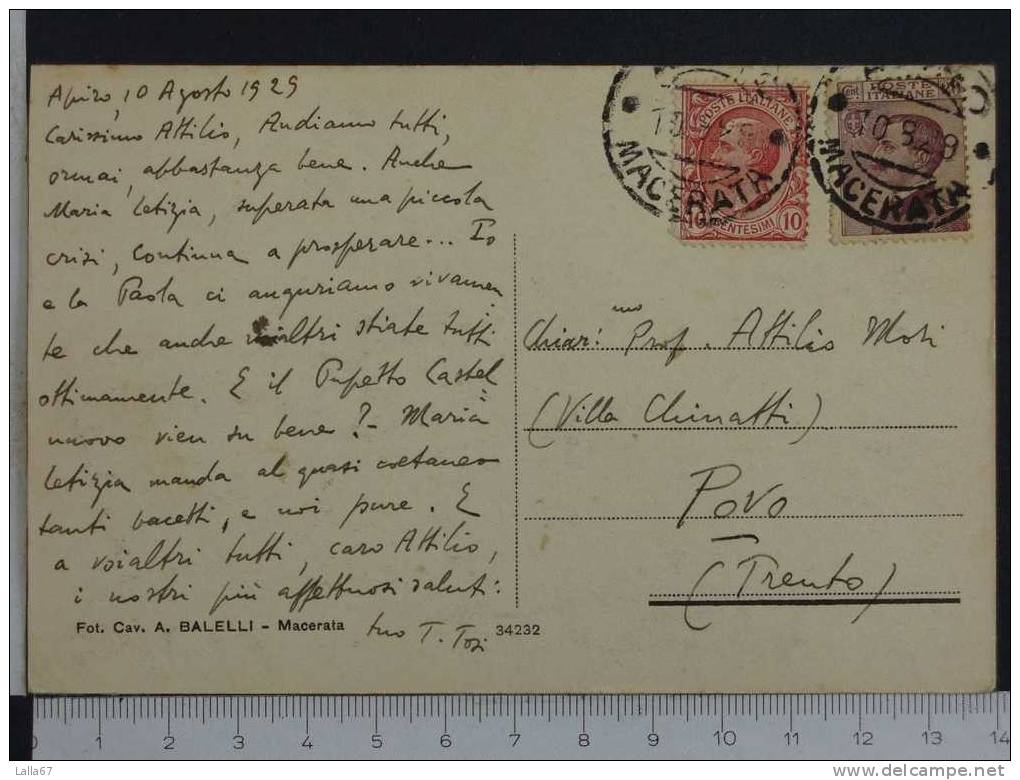 Apiro, 10 Agosto 1929
Carissimo Attilio, Andiamo tutti,
ormai, abbastanza bene. Anche
Maria Letizia, superata una piccola
crisi, continua a prosperare... Io
e la Paola ci auguriamo vivamen
te che anche voialtri stiate tutti
ottimamente. E il Pupetto Castel
nuovo vien su bene? - Maria
Letizia manda al quasi coetaneo
tanti bacetti, e noi pure. E
a voialtri tutti, caro Attilio,
i nostri più affettuosi saluti:
tuo T. Tosi
Fot. Cav. A. BALELLI - Macerata
34232
POSTE ITALIANE
10 10
CENTESIMI
MACERATA
POSTE
ITALIANE
cent.
10 8 29
MACERATA
Chiar.mo Prof. Attilio Mori
(Villa Chinatti)
Povo
(Trento)
0 1 2 3 4 5 6 7 8 9 10 11 12 13 14
Lalla67
www.delcampe.net